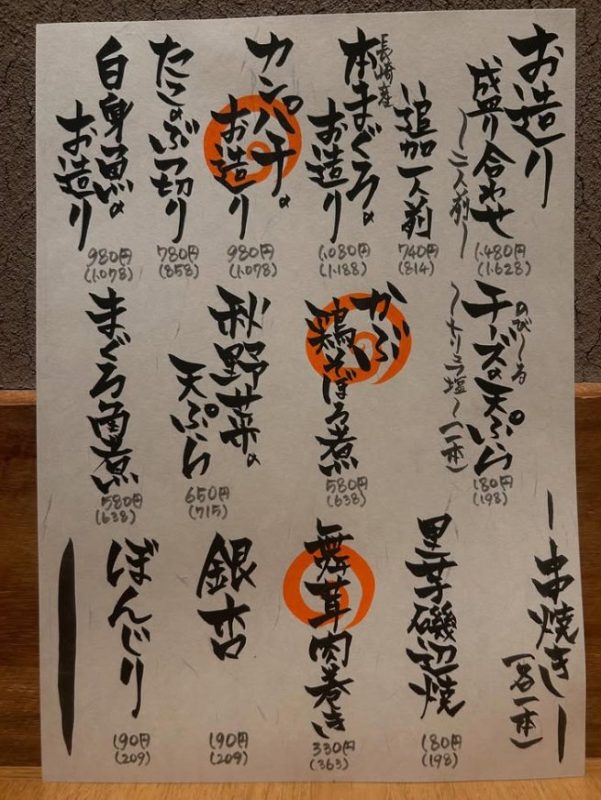 お造り
盛り合わせ
～二人前～
1.480円
(1.628)
追加一人前
740円
(814)
長崎産
本まぐろの
お造り
1.080円
(1.188)
カンパチの
お造り
980円
(1.078)
たこのぶつ切り
780円
(858)
白身魚の
お造り
980円
(1.078)
のび～る
チーズの天ぷら
～トリュフ塩～(一本)
180円
(198)
かぶ
鶏そぼろ煮
580円
(638)
秋野菜の
天ぷら
650円
(715)
まぐろ角煮
580円
(638)
ー串焼きー
(各一本)
里芋磯辺焼
180円
(198)
舞茸肉巻き
330円
(363)
銀杏
190円
(209)
ぼんじり
190円
(209)